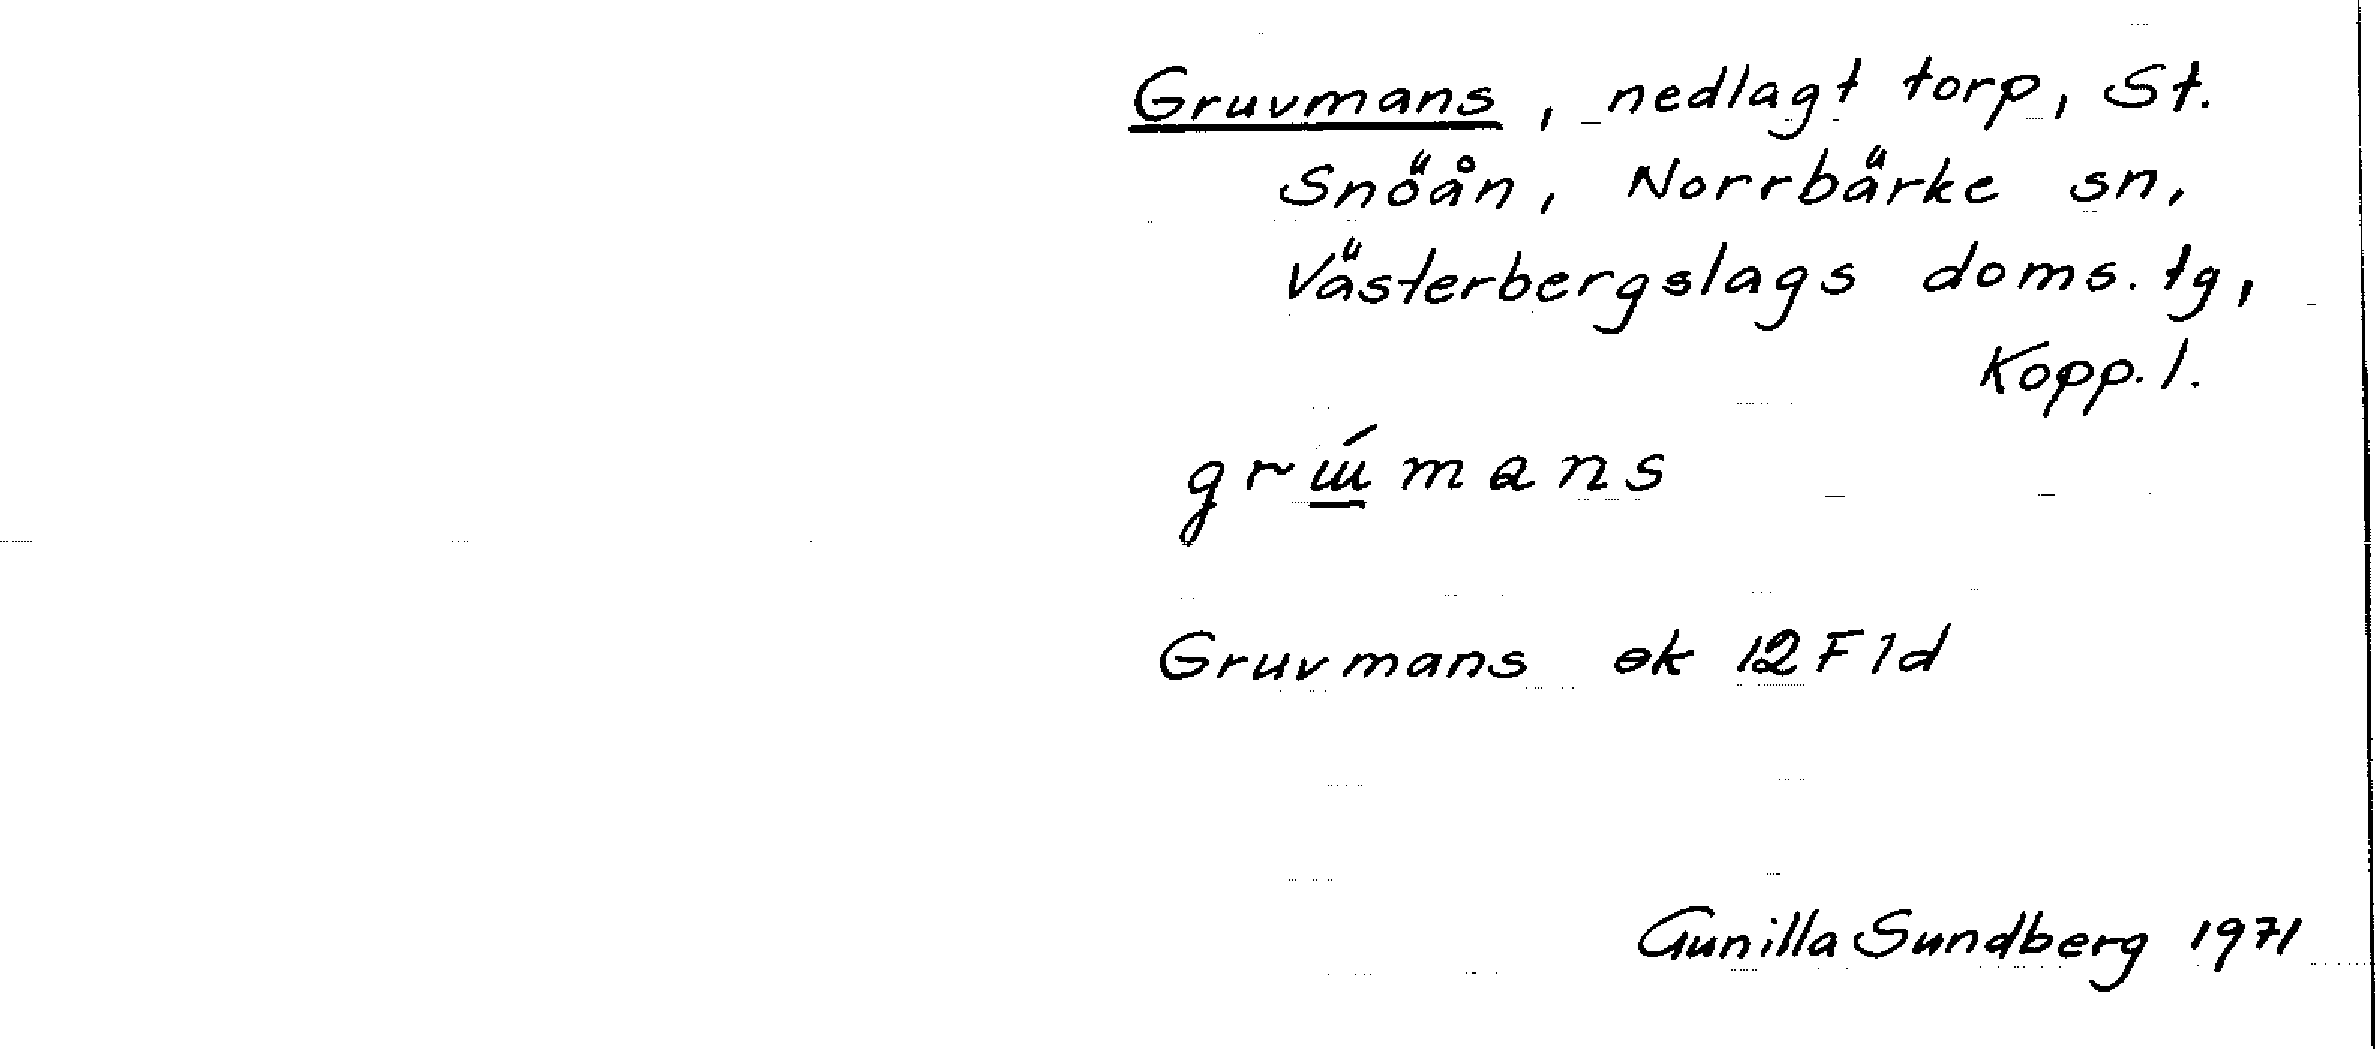 Gruvmans, nedlagt torp, St.
Snöån, Norrbärke sn,
Västerbergslags doms.tg,
Kopp.l.
grɯ̲́mans
Gruvmans ek 12F1d
Gunilla Sundberg 1971